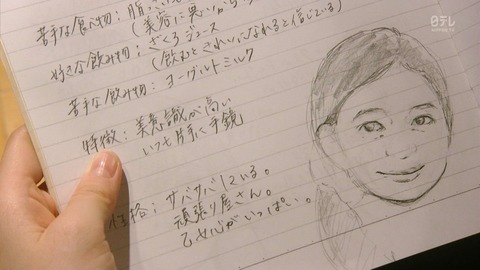 日テレ
苦手な食べ物：脂
（美容に悪いから
好きな飲み物：ざくろジュース
（飲むときれいになれると信じている）
苦手な飲み物：ヨーグルトミルク
特徴：美意識が高い
いつも片手に手鏡
性格：サバサバしている。
頑張り屋さん。
乙女心がいっぱい。